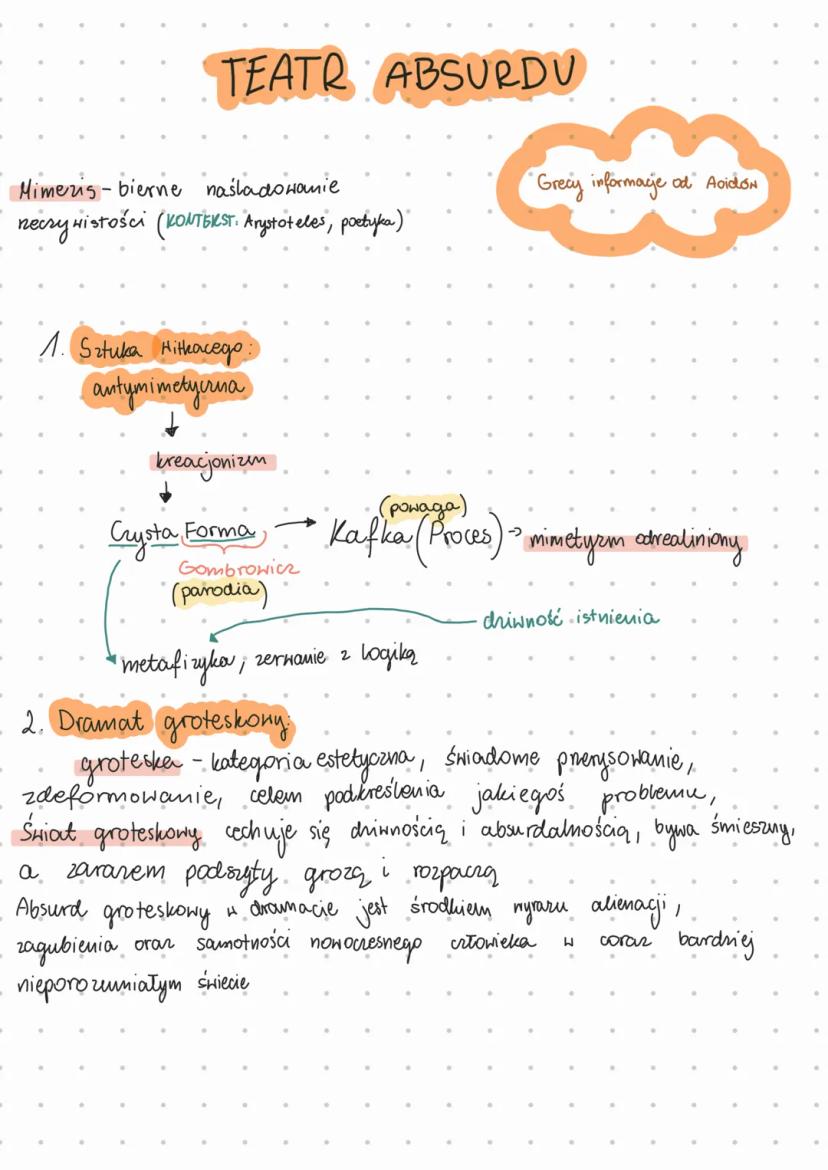 TEATR ABSURDU
Grecy informacje od Aoidów
Mimezis - bierne naśladowanie
rzeczywistości (KONTEKST: Arystoteles, poetyka)
1. Sztuka Witkacego:
antymimetyczna
kreacjonizm
(powaga)
Czysta Forma → Kafka (Proces) → mimetyzm odrealniony
Gombrowicz
(parodia)
dziwność istnienia
metafizyka, zerwanie z logiką
2. Dramat groteskowy:
groteska - kategoria estetyczna, świadome przerysowanie,
zdeformowanie, celem podkreślenia jakiegoś problemu,
Świat groteskowy cechuje się dziwnością i absurdalnością, bywa śmieszny,
a zarazem podszyty grozą i rozpaczą
Absurd groteskowy w dramacie jest środkiem wyrazu alienacji,
zagubienia oraz samotności nowoczesnego człowieka w coraz bardziej
nieporozumiałym świecie